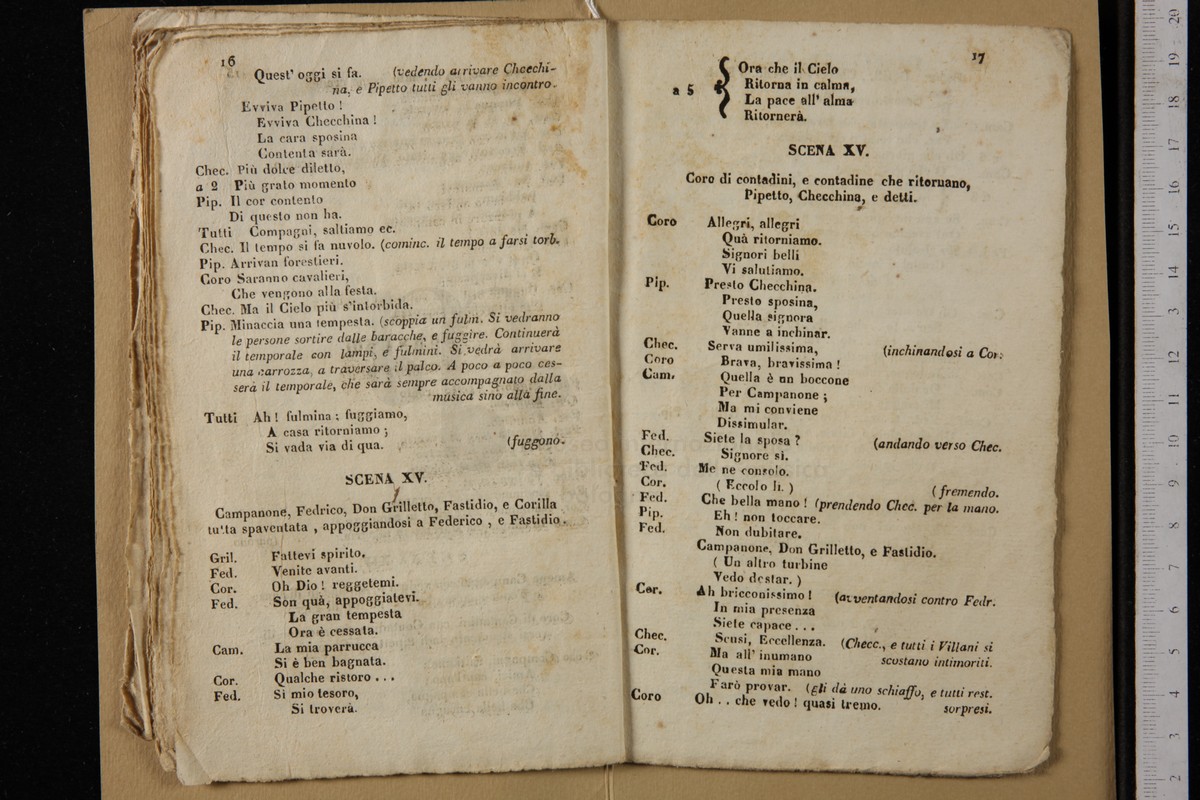 16
Quest' oggi si fa. (vedendo arrivare Checchi-
na, e Pipetto tutti gli vanno incontro.
Evviva Pipetto !
Evviva Checchina !
La cara sposina
Contenta sarà.
Chec. Più dolce diletto,
a 2 Più grato momento
Pip. Il cor contento
Di questo non ha.
Tutti Compagni, saltiamo ec.
Chec. Il tempo si fa nuvolo. (cominc. il tempo a farsi torb.
Pip. Arrivan forestieri.
Coro Saranno cavalieri,
Che vengono alla festa.
Chec. Ma il Cielo più s'intorbida.
Pip. Minaccia una tempesta. (scoppia un fulm. Si vedranno
le persone sortire dalle baracche, e fuggire. Continuerà
il temporale con lampi, e fulmini. Si vedrà arrivare
una carrozza, a traversare il palco. A poco a poco ces-
serà il temporale, che sarà sempre accompagnato dalla
musica sino alla fine.
Tutti Ah ! fulmina ; fuggiamo,
A casa ritorniamo ;
Si vada via di qua. (fuggono.
SCENA XV.
Campanone, Fedrico, Don Grilletto, Fastidio, e Corilla
tutta spaventata , appoggiandosi a Federico , e Fastidio.
Gril. Fattevi spirito.
Fed. Venite avanti.
Cor. Oh Dio ! reggetemi.
Fed. Son quà, appoggiatevi.
La gran tempesta
Ora è cessata.
Cam. La mia parrucca
Si è ben bagnata.
Cor. Qualche ristoro . . .
Fed. Si mio tesoro,
Si troverà.
17
a 5 Ora che il Cielo
Ritorna in calma,
La pace all' alma
Ritornerà.
SCENA XV.
Coro di contadini, e contadine che ritoruano,
Pipetto, Checchina, e detti.
Coro Allegri, allegri
Quà ritorniamo.
Signori belli
Vi salutiamo.
Pip. Presto Checchina.
Presto sposina,
Quella signora
Vanne a inchinar.
Chec. Serva umilissima, (inchinandosi a Cor.
Coro Brava, bravissima !
Cam. Quella è un boccone
Per Campanone ;
Ma mi conviene
Dissimular.
Fed. Siete la sposa ? (andando verso Chec.
Chec. Signore sì.
Fed. Me ne consolo.
Cor. ( Eccolo lì. ) (fremendo.
Fed. Che bella mano ! (prendendo Chec. per la mano.
Pip. Eh ! non toccare.
Fed. Non dubitare.
Campanone, Don Grilletto, e Fastidio.
( Un altro turbine
Vedo destar. )
Cor. Ah bricconissimo ! (avventandosi contro Fedr.
In mia presenza
Siete capace . . .
Chec. Scusi, Eccellenza. (Checc., e tutti i Villani si
Cor. Ma all' inumano scostano intimoriti.
Questa mia mano
Farò provar. (gli dà uno schiaffo, e tutti rest.
Coro Oh . . che vedo ! quasi tremo. sorpresi.